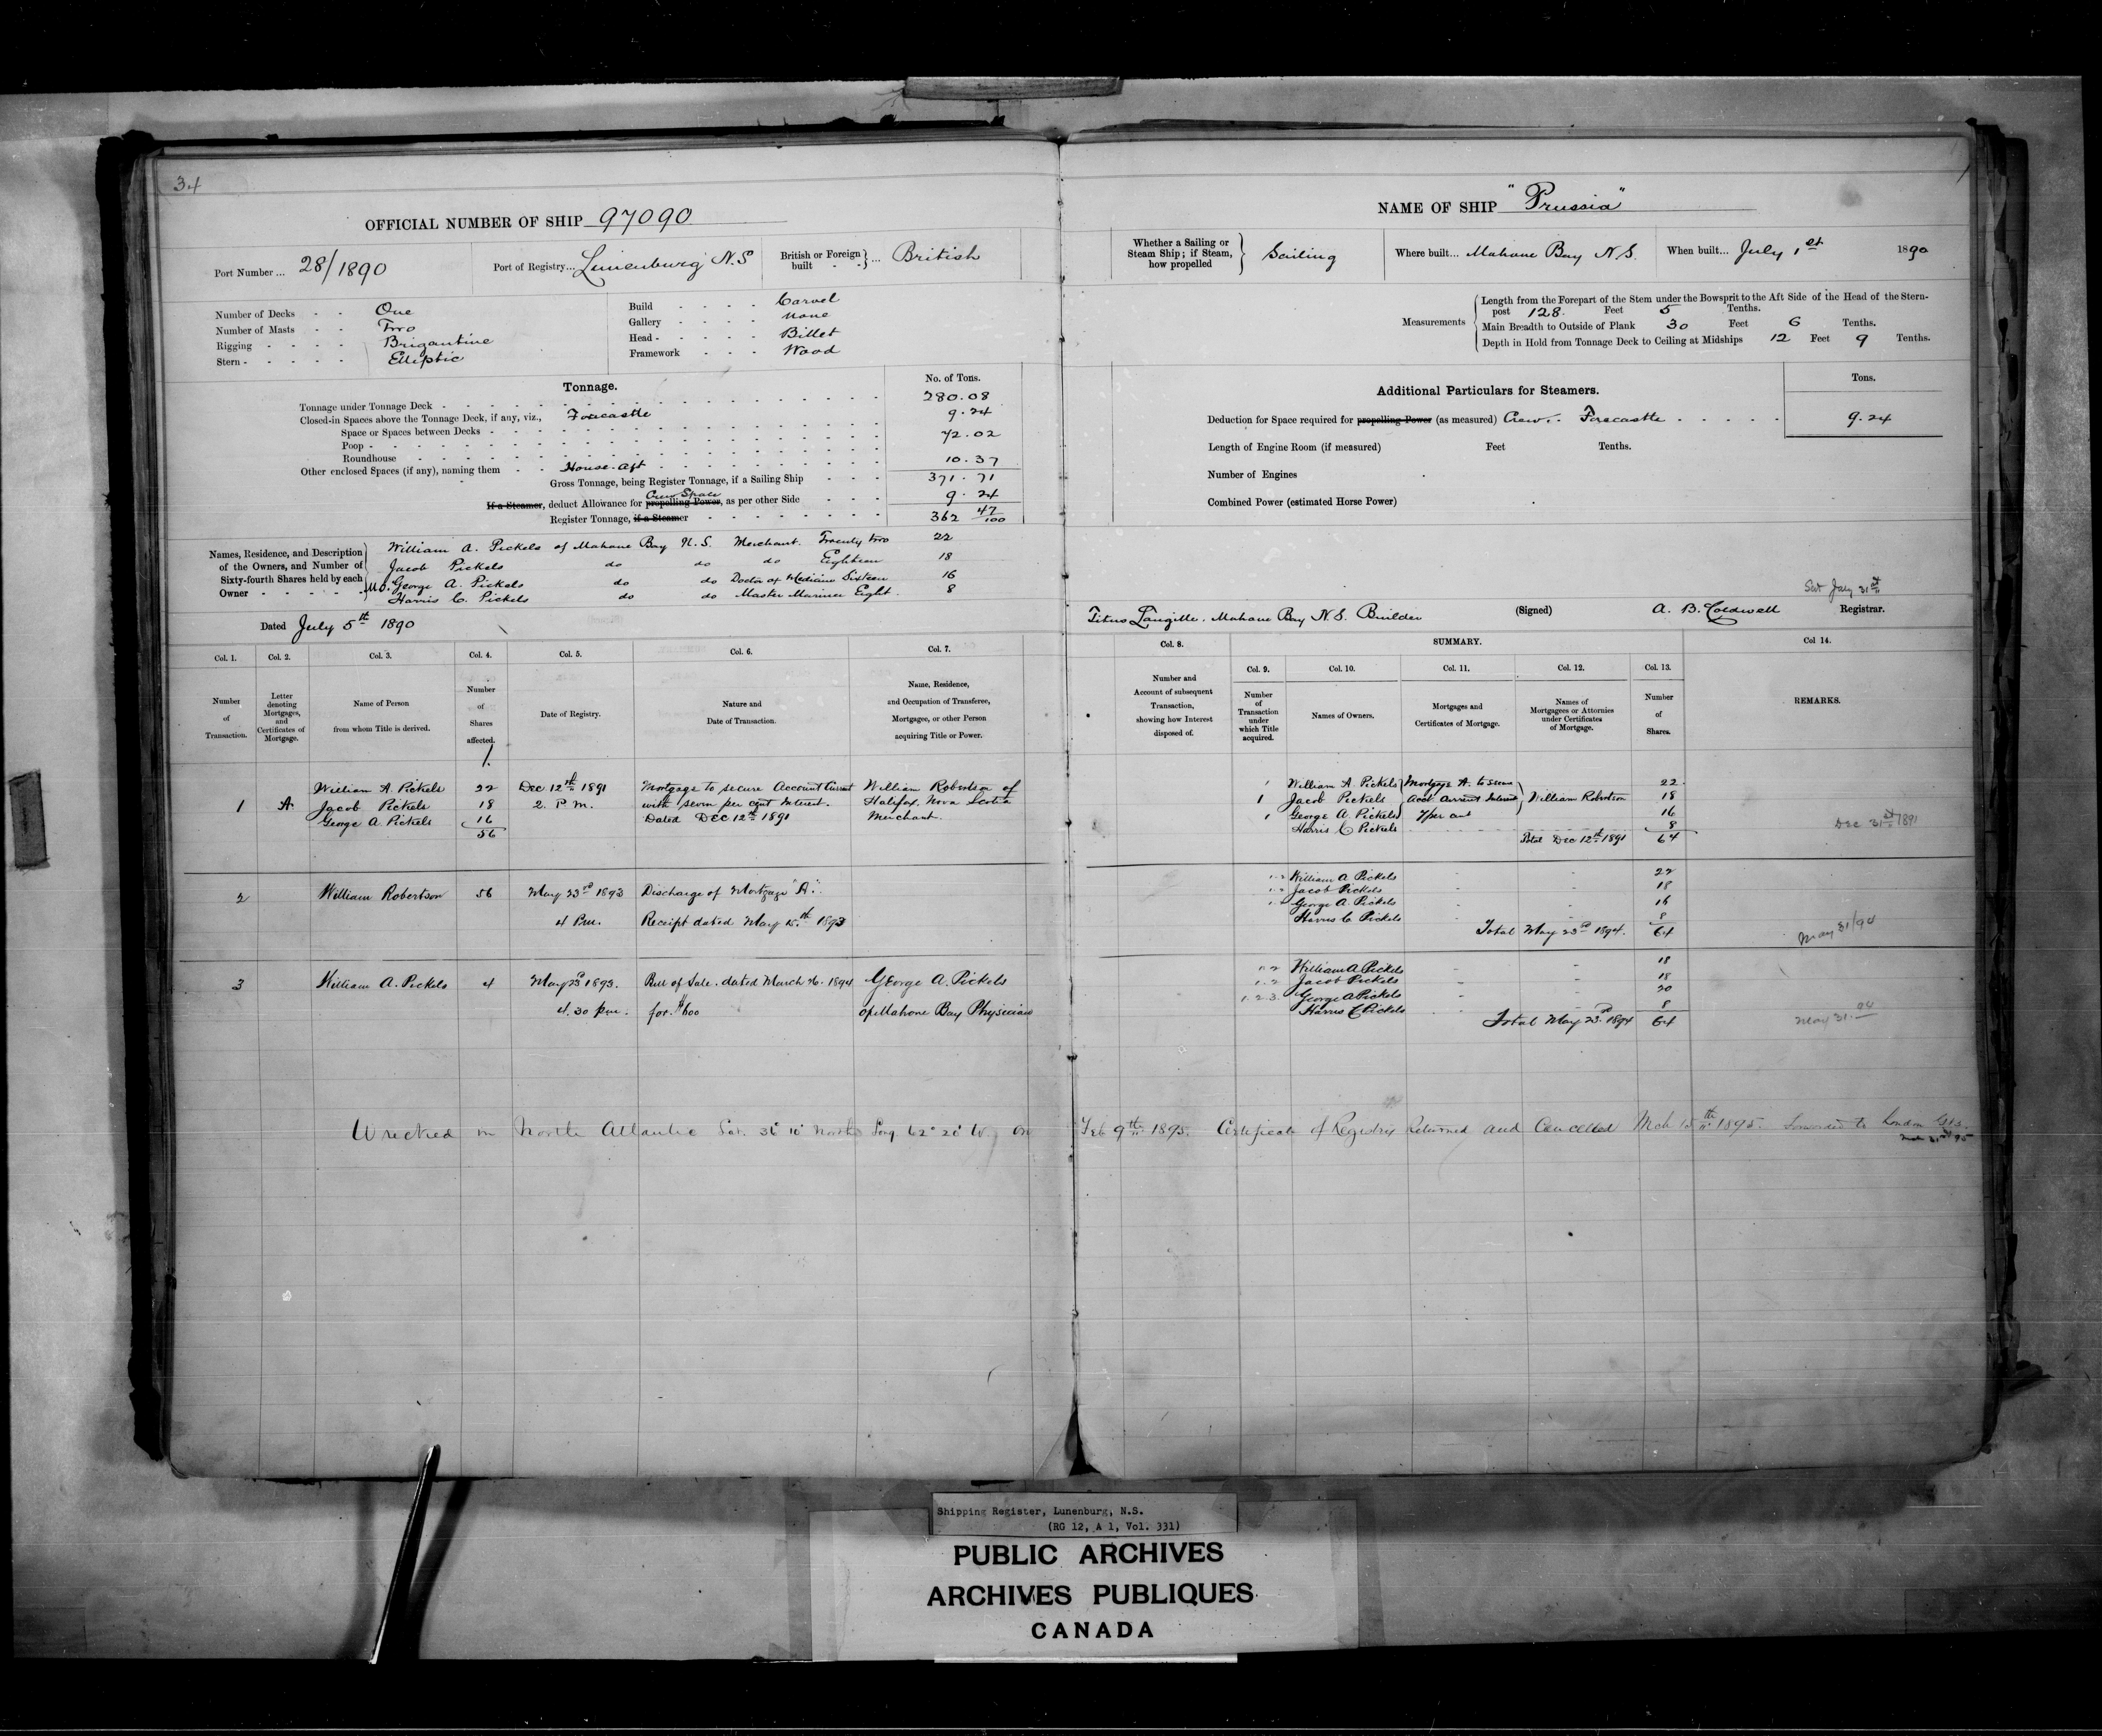 34
OFFICIAL NUMBER OF SHIP 97090
Port Number ... 28/1890
Port of Registry... Lunenburg N.S
British or Foreign built ... British
Number of Decks - - One
Number of Masts - - Two
Rigging - - - - Brigantine
Stern - - - - - Elliptic
Build - - - - Carvel
Gallery - - - - None
Head - - - - - Billet
Framework - - - Wood
Tonnage.
No. of Tons.
Tonnage under Tonnage Deck 280.08
Closed-in Spaces above the Tonnage Deck, if any, viz., Forecastle 9.24
Space or Spaces between Decks 72.02
Poop
Roundhouse
Other enclosed Spaces (if any), naming them House-aft 10.37
Gross Tonnage, being Register Tonnage, if a Sailing Ship 371.71
If a Steamer, deduct Allowance for propelling Power, Crew Space as per other Side 9.24
Register Tonnage, if a Steamer 362 47/100
Names, Residence, and Description of the Owners, and Number of Sixty-fourth Shares held by each Owner
William A. Pickels of Mahone Bay N.S. Merchant. Twenty two 22
Jacob Pickels do do Eighteen 18
George A. Pickels do do Doctor of Medicine Sixteen 16
Harris C. Pickels do do Master Mariner Eight. 8
Dated July 5th 1890
Col. 1. Col. 2. Col. 3. Col. 4. Col. 5. Col. 6. Col. 7.
Number of Transaction.
Letter denoting Mortgages, and Certificates of Mortgage.
Name of Person from whom Title is derived.
Number of Shares affected.
Date of Registry.
Nature and Date of Transaction.
Name, Residence, and Occupation of Transferee, Mortgagee, or other Person acquiring Title or Power.
1 A William A. Pickels 22 Dec 12th 1891 Mortgage to secure Account Current William Robertson of
Jacob Pickels 18 2. P m. with seven per cent Interest. Halifax, Nova Scotia
George A. Pickels 16 Dated Dec 12th 1891 Merchant.
56
2 William Robertson 56 May 23rd 1893 Discharge of Mortgage "A".
4 Pm. Receipt dated May 15th 1893
3 William A. Pickels 4 May 23rd 1893. Bill of Sale. dated March 26. 1894 George A. Pickels
4.30 pm. for $600 of Mahone Bay Physician
Wrecked on North Atlantic Lat. 36° 10' North Long 62° 20' W. on
NAME OF SHIP "Prussia"
Whether a Sailing or Steam Ship; if Steam, how propelled Sailing
Where built... Mahone Bay N.S.
When built... July 1st 1890
Measurements
Length from the Forepart of the Stem under the Bowsprit to the Aft Side of the Head of the Stern-
post 128. Feet 5 Tenths.
Main Breadth to Outside of Plank 30 Feet 6 Tenths.
Depth in Hold from Tonnage Deck to Ceiling at Midships 12 Feet 9 Tenths.
Additional Particulars for Steamers.
Tons.
Deduction for Space required for propelling Power (as measured) Crew. Forecastle 9.24
Length of Engine Room (if measured) Feet Tenths.
Number of Engines
Combined Power (estimated Horse Power)
July 31st
Titus Langille. Mahone Bay N.S. Builder (Signed) A. B. Coldwell Registrar.
Col. 8. SUMMARY. Col 14.
Col. 9. Col. 10. Col. 11. Col. 12. Col. 13.
Number and Account of subsequent Transaction, showing how Interest disposed of.
Number of Transaction under which Title acquired.
Names of Owners.
Mortgages and Certificates of Mortgage.
Names of Mortgagees or Attornies under Certificates of Mortgage.
Number of Shares.
REMARKS.
1 William A. Pickels Mortgage A. to secure 22
1 Jacob Pickels Acct Current Interest William Robertson 18
1 George A. Pickels 7 per cent 16
Harris C Pickels 8
Total Dec 12th 1891 64
Dec 31st 1891
1-2 William A Pickels - - 22
1-2 Jacob Pickels 18
1-2 George A. Pickels - - 16
Harris C. Pickels 8
Total May 23rd 1894. 64
May 31/94
1-2 William A Pickels - - 18
1-2 Jacob Pickels 18
1.2.3. George A Pickels 20
Harris C Pickels 8
Total May 23rd 1894 64
May 31. 94
Feb 9th 1895. Certificate of Registry Returned and Cancelled Mch 15th 1895. Forwarded to London
Shipping Register, Lunenburg, N.S.
(RG 12, A 1, Vol. 331)
PUBLIC ARCHIVES
ARCHIVES PUBLIQUES
CANADA